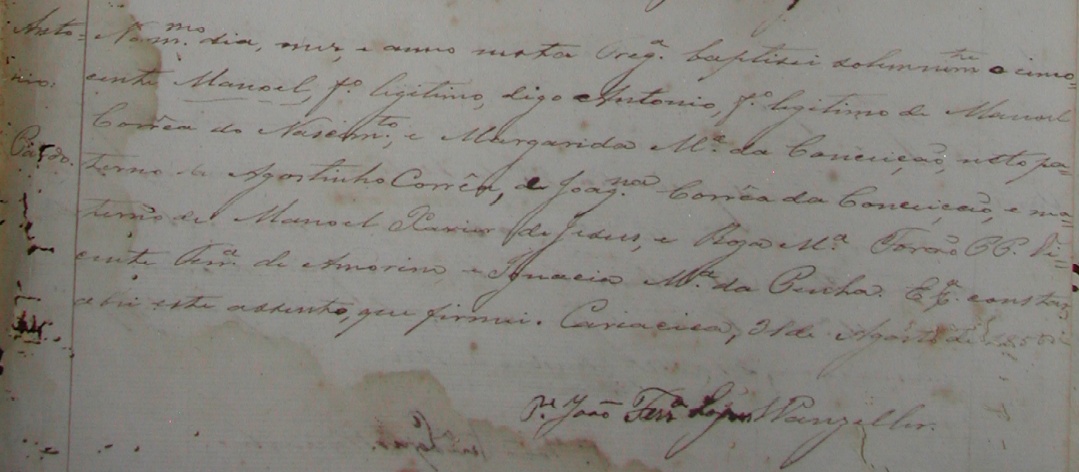 Anto=
nio.
Pardo.
No mmo. dia, mez, e anno nesta Frega. baptizei solemnemte o inno=
cente Manoel, fo. legitimo, digo Antonio, fo. legitimo de Manoel
Corrêa do Nascimto., e Margarida Ma. da Conceição, neto pa=
terno de Agostinho Corrêa, e Joaqna. Corrêa da Conceição, e ma=
terno de Manoel Xavier de Jesus, e Roza Ma. Forão PP. Vi=
cente Ferra. de Amorim e Ignacia Ma. da Penha. E pa. constar
abri este assento, que firmei. Cariacica, 31 de Agosto de
Pe. João Ferra. Lopes Wanzeller.